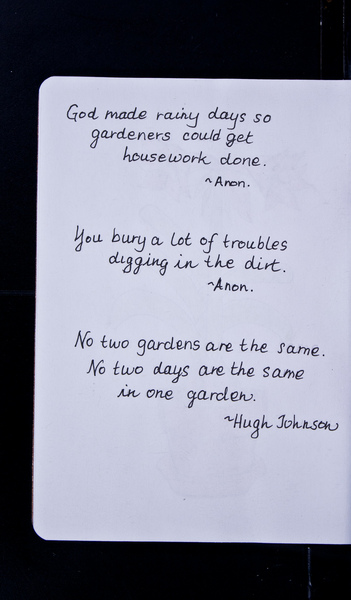 God made rainy days so
gardeners could get
housework done.
~Anon.
You bury a lot of troubles
digging in the dirt.
~Anon.
No two gardens are the same.
No two days are the same
in one garden.
~Hugh Johnson